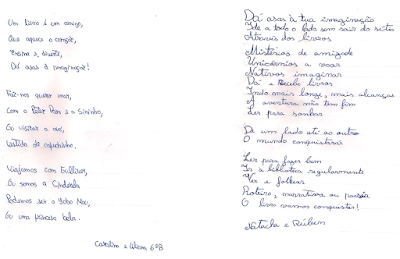 Um livro é um amigo,
Que aquece o coração,
Ensina e diverte,
Dá asas à imaginação!
Faz-nos querer voar,
Com o Peter Pan e a Sininho,
Ou visitar a avó,
Vestida de capuchinho.
Viajamos com Gulliver,
Ou somos a Cinderela
Podemos ser o Lobo Mau,
Ou uma princesa bela.
Carolina e 6ºB
Dá asas à tua imaginação
a todo o lado sem sair do sítio
Através dos livros
Mistérios de amizade
Unicórnios a voar
Nativos imaginar
Dá e Recebe livros
Indo mais longe, mais alcanças
A aventura não tem fim
Ler para sonhar
De um lado até ao outro
O mundo conquistarás
Ler para fazer bem
Ir à biblioteca regularmente
Ver e folhear
Roteiro, narrativa ou poesia
O livro vamos conquistar!
Natacha e Rúben